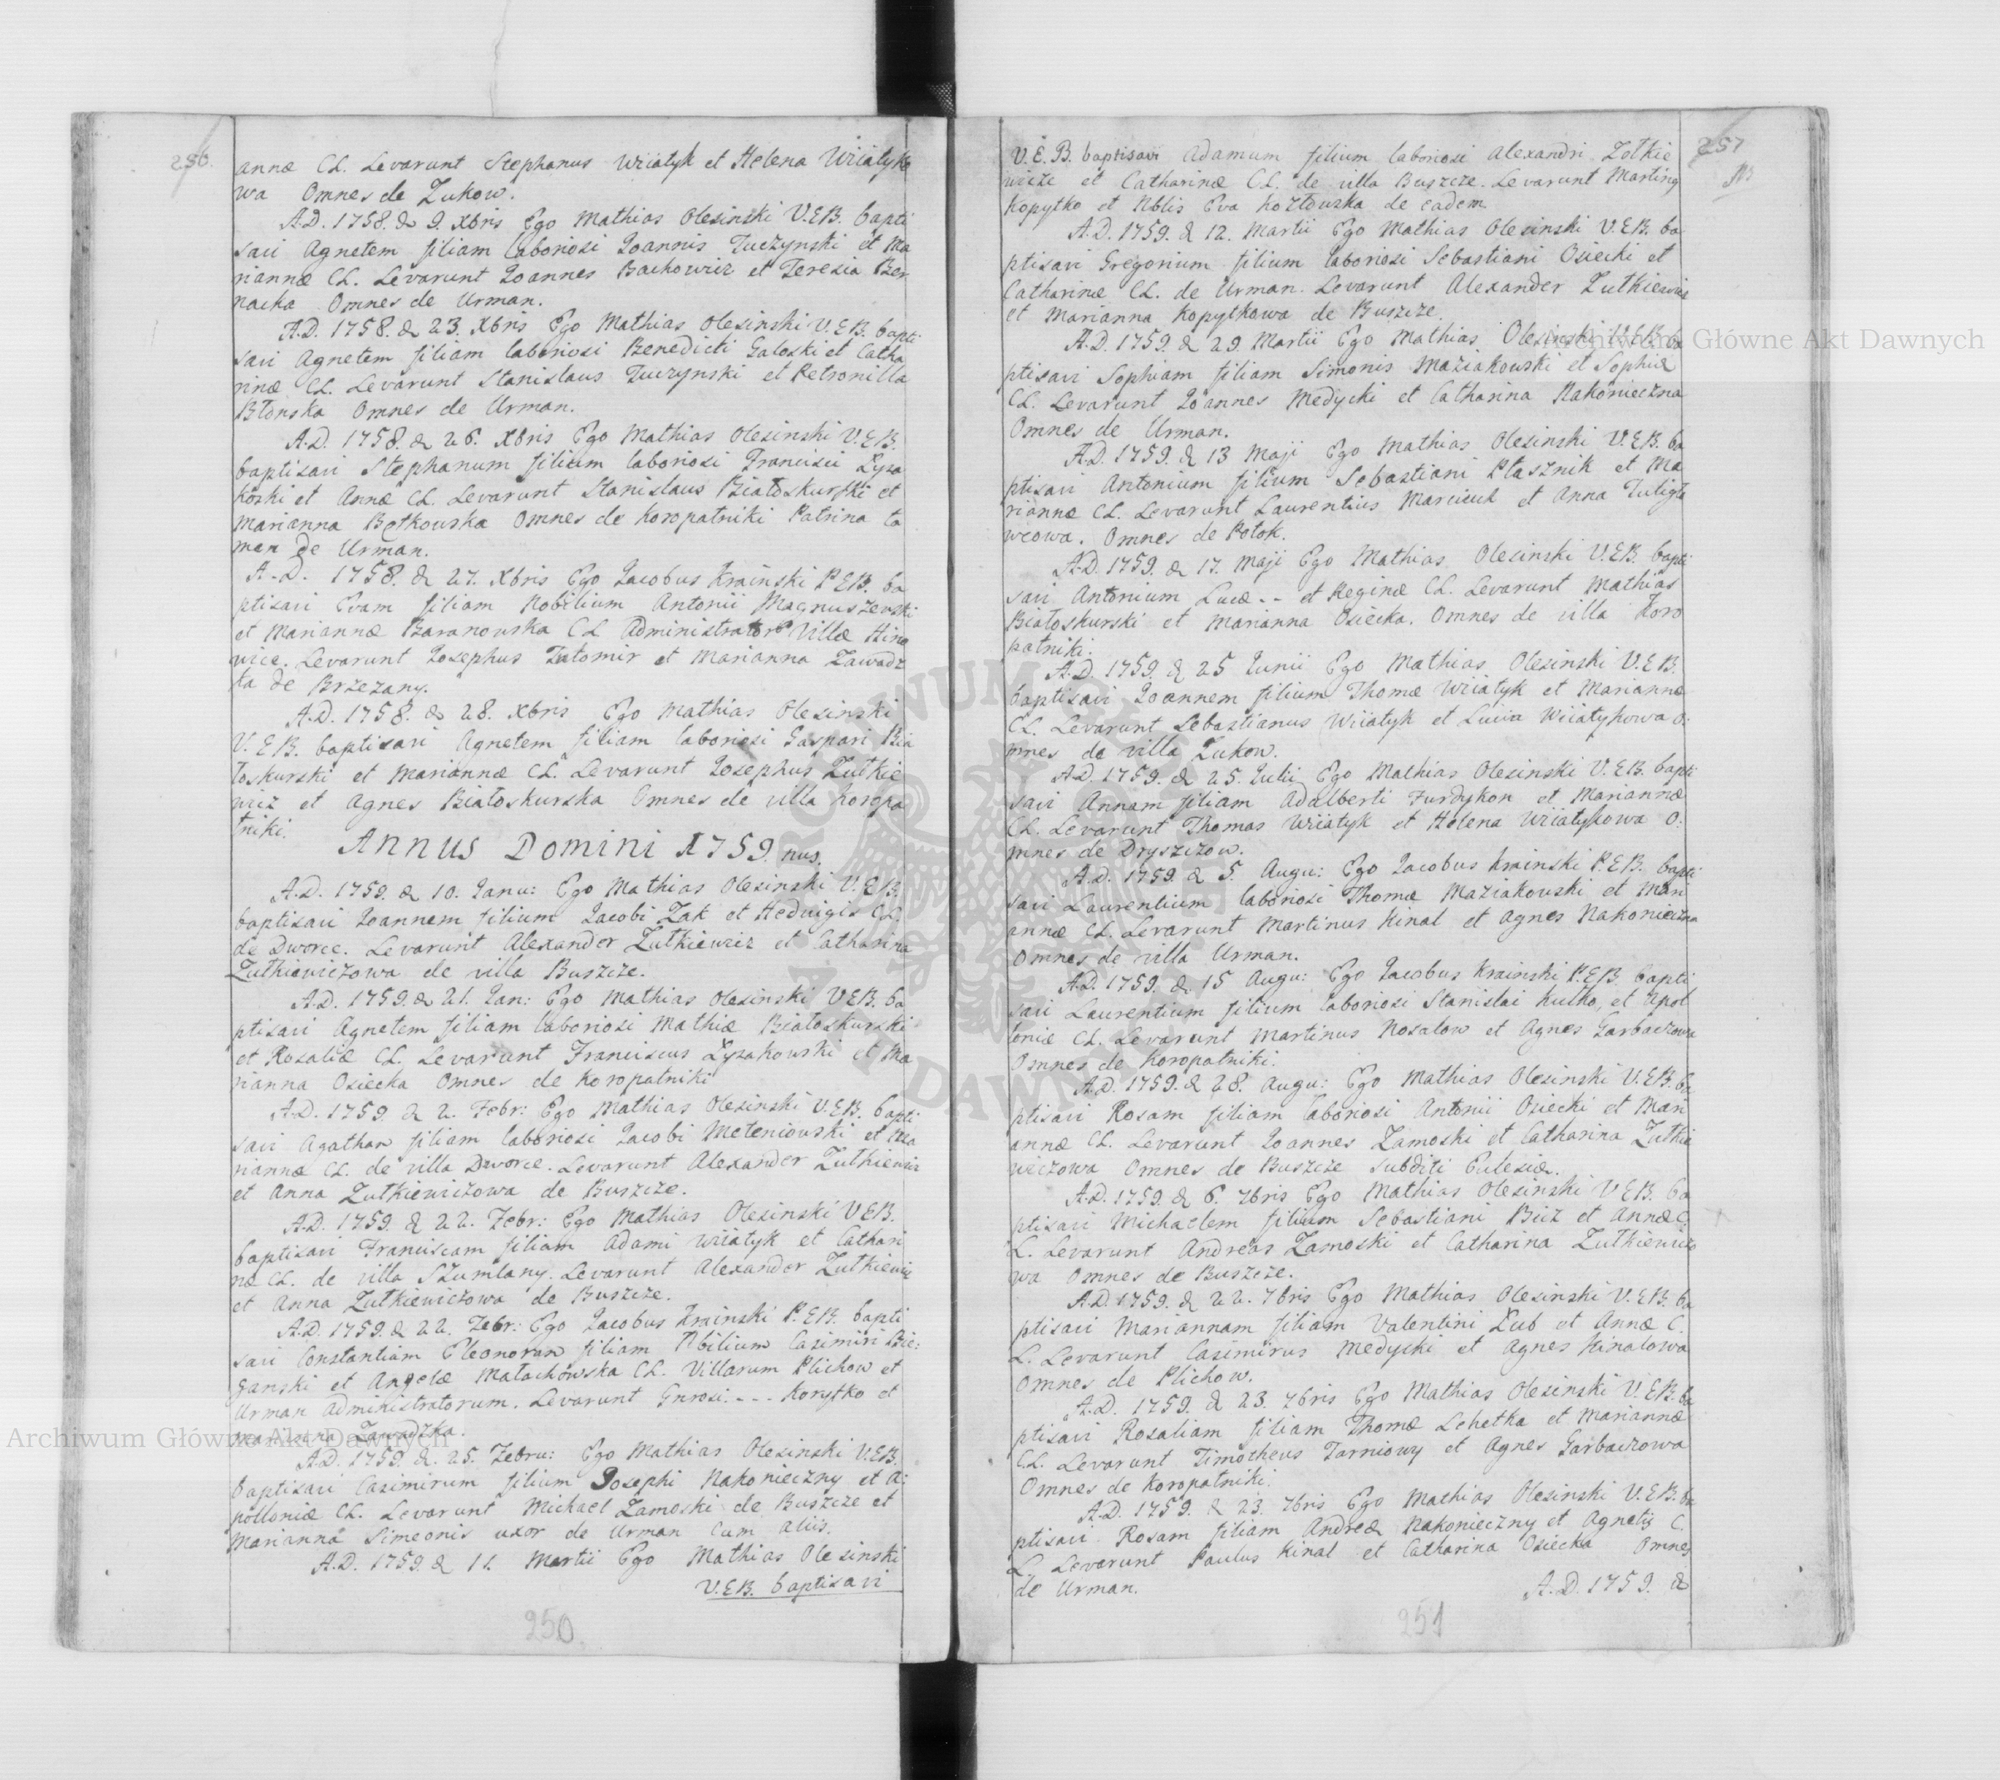 256.
annæ CL. Levarunt Stephanus Wiiatyk et Helena Wiiatyko
wa Omnes de Zukow.
A.D. 1758. d 9. Xbris Ego Mathias Olesinski V.E.B. bapti
savi Agnetem filiam laboriosi Joannis Tuczynski et Ma
riannæ CL. Levarunt Joannes Bachowicz et Teresia Ber
nacka Omnes de Urman.
A.D. 1758. d 23. Xbris Ego Mathias Olesinski V.E.B. bapti
savi Agnetem filiam laboriosi Benedicti Galoski et Catha
rinæ CL. Levarunt Stanislaus Tuczynski et Petronilla
Błonska Omnes de Urman.
A.D. 1758. d 26. Xbris Ego Mathias Olesinski V.E.B.
baptisavi Stephanum filium laboriosi Francisci Łyza
koski et Annæ CL. Levarunt Stanislaus Białoskurski et
Marianna Bętkowska Omnes de Koropatniki Patrina ta
men de Urman.
A.D. 1758. d 27. Xbris Ego Jacobus Krainski P.E.B. ba
ptisavi Evam filiam Nobilium Antonii Magnuszewski
et Mariannæ Baranowska CL Administrator Villæ Hino
wice. Levarunt Josephus Zutomir et Marianna Zawadz
ka de Brzezany.
A.D. 1758. d 28. Xbris Ego Mathias Olesinski
V.E.B. baptisavi Agnetem filiam laboriosi Gaspari Bia
łoskurski et Mariannæ CL. Levarunt Josephus Zutkie
wicz et Agnes Białoskurska Omnes de villa Koropa
tniki.
Annus Domini 1759. nus.
A.D. 1759. d 10. Janu: Ego Mathias Olesinski V.E.B.
baptisavi Joannem filium Jacobi Zak et Hedvigis CL.
de Dworce. Levarunt Alexander Zutkiewicz et Catharina
Zutkiewiczowa de villa Buszcze.
A.D. 1759. d 21. Jan: Ego Mathias Olesinski V.E.B. ba
ptisavi Agnetem filiam laboriosi Mathiæ Białoskurski
et Rosaliæ CL. Levarunt Franciscus Łyzakowski et Ma
rianna Osiecka Omnes de Koropatniki
A.D. 1759 d 2. Febr: Ego Mathias Olesinski V.E.B. bapti
savi Agatham filiam laboriosi Jacobi Meteniowski et Ma
riannæ CL. de villa Dworce. Levarunt Alexander Zutkiewicz
et Anna Zutkiewiczowa de Buszcze.
A.D. 1759. d 22. Febr: Ego Mathias Olesinski V.E.B.
baptisavi Franciscam filiam Adami Wiiatyk et Cathari
næ CL. de villa Szumlany. Levarunt Alexander Zutkiewicz
et Anna Zutkiewiczowa de Buszcze.
A.D. 1759. d 22. Febr: Ego Jacobus Krainski P.E.B. bapti
savi Constantiam Eleonoram filiam Nbilium Casimiri Bie:
ganski et Angelæ Małachowska CL. Villarum Plichow et
Urman Administratorum. Levarunt Gnrosi. - - - Korytko et
Marianna Zawadzka.
A.D. 1759. d. 25. Febru: Ego Mathias Olesinski V.E.B.
baptisavi Casimirum filium Josephi Nakonieczny et A:
polloniæ CL. Levarunt Michael Zamoski de Buszcze et
Marianna Simeonis uxor de Urman Cum Aliis.
A.D. 1759. d 11. Martii Ego Mathias Olesinski
V.E.B. baptisavi
250
257
NB
V.E.B. baptisavi Adamum filium laboriosi Alexandri Zotkie
wicze et Catharinæ CL. de villa Buszcze. Levarunt Martinq
Kopytko et Nblis Eva Kozłowska de eadem
A.D. 1759. d 12. Martii Ego Mathias Olesinski V.E.B. ba
ptisavi Gregorium filium laboriosi Sebastiani Osiecki et
Catharinæ CL. de Urman. Levarunt Alexander Zutkiewicz
et Marianna Kopytkowa de Buszcze.
A.D. 1759. d 29. Martii Ego Mathias Olesinski V.E.B. ba
ptisavi Sophiam filiam Simonis Maziakowski et Sophiæ
CL. Levarunt Joannes Medycki et Catharina Nakonieczna
Omnes de Urman.
A.D. 1759. d 13 Maji Ego Mathias Olesinski V.E.B. ba
ptisavi Antonium filium Sebastiani Ptasznik et Ma
riannæ CL. Levarunt Laurentius Marciuk et Anna Tuligło
wcowa. Omnes de Potok.
A.D. 1759. d 17. Maji Ego Mathias Olesinski V.E.B. bapti
savi Antonium Lucæ - - et Reginæ CL. Levarunt Mathias
Białoskurski et Marianna Osiecka. Omnes de villa Koro
patniki.
A.D. 1759. d 25 Junii Ego Mathias Olesinski V.E.B.
baptisavi Joannem filium Thomæ Wiiatyk et Mariannæ
CL. Levarunt Sebastianus Wiiatyk et Lucia Wiiatykowa O:
mnes de villa Zukow.
A.D. 1759. d 25. Julii Ego Mathias Olesinski V.E.B. bapti
savi Annam filiam Adalberti Furdykon et Mariannæ
CL. Levarunt Thomas Wiiatyk et Helena Wiiatykowa O:
mnes de Dryszczow.
A.D. 1759 d 5 Augu: Ego Jacobus Krainski P.E.B. bapti
savi Laurentium laboriosi Thomæ Maziakowski et Mari
annæ CL. Levarunt Martinus Kinal et Agnes Nakonieczna
Omnes de villa Urman.
A.D. 1759. d. 15 Augu: Ego Jacobus Krainski P.E.B. bapti
savi Laurentium filium laboriosi Stanislai Kulko, et Apol
loniæ CL. Levarunt Martinus Rosatow et Agnes Garbaczowa
Omnes de Koropatniki.
A.D. 1759. d 28. Augu: Ego Mathias Olesinski V.E.B. ba
ptisavi Rosam filiam laboriosi Antonii Osiecki et Mari
annæ CL. Levarunt Joannes Zamoski et Catharina Zutkie
wiczowa Omnes de Buszcze subditi Eclesiæ.
A.D. 1759. d 6. 7bris Ego Mathias Olesinski V.E.B. ba
ptisavi Michaelem filium Sebastiani Bicz et Annæ C.
L. Levarunt Andreas Zamoski et Catharina Zutkiewiczo
wa Omnes de Buszcze.
A.D. 1759. d 22. 7bris Ego Mathias Olesinski V.E.B. ba
ptisavi Mariannam filiam Valentini Łub et Annæ C.
L. Levarunt Casimirus Medycki et Agnes Kinalowa
Omnes de Plichow.
A.D. 1759. d 23. 7bris Ego Mathias Olesinski V.E.B. ba
ptisavi Rosaliam filiam Thomæ Lehetka et Mariannæ
CL. Levarunt Timotheus Tarniowy et Agnes Garbaczowa
Omnes de Koropatniki.
A.D. 1759. d 23. 7bris Ego Mathias Olesinski V.E.B. ba
ptisavi Rosam filiam Andreæ Nakonieczny et Agnetis C.
L. Levarunt Paulus Kinal et Catharina Osiecka Omnes
de Urman.
A.D. 1759. d
251
Archiwum Główne Akt Dawnych
Archiwum Główne Akt Dawnych